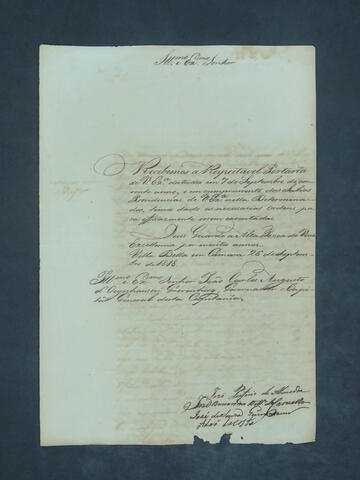 Illmo e Exmo Senhor
Recebemos a Respeitavel Portaria
de V. Exa datada em 7 de Septembro do cor
rente anno, e em cumprimento das Sabias
Providencias de V. Exa nella Determina
das, temos dado as necessarias ordens pa
ra efficazmente serem executadas.
Deus Guarde a Alta Pessoa de Vossa
Excellencia por muitos annos.
Villa Bella em Camara 26 de Septem
bro de 1818.
Illmo e Exmo Senhor João Carlos Augusto
d'Oeynhausen Gravenburg, Governador e Capi
tão General desta Capitania.
José de Almeida
José